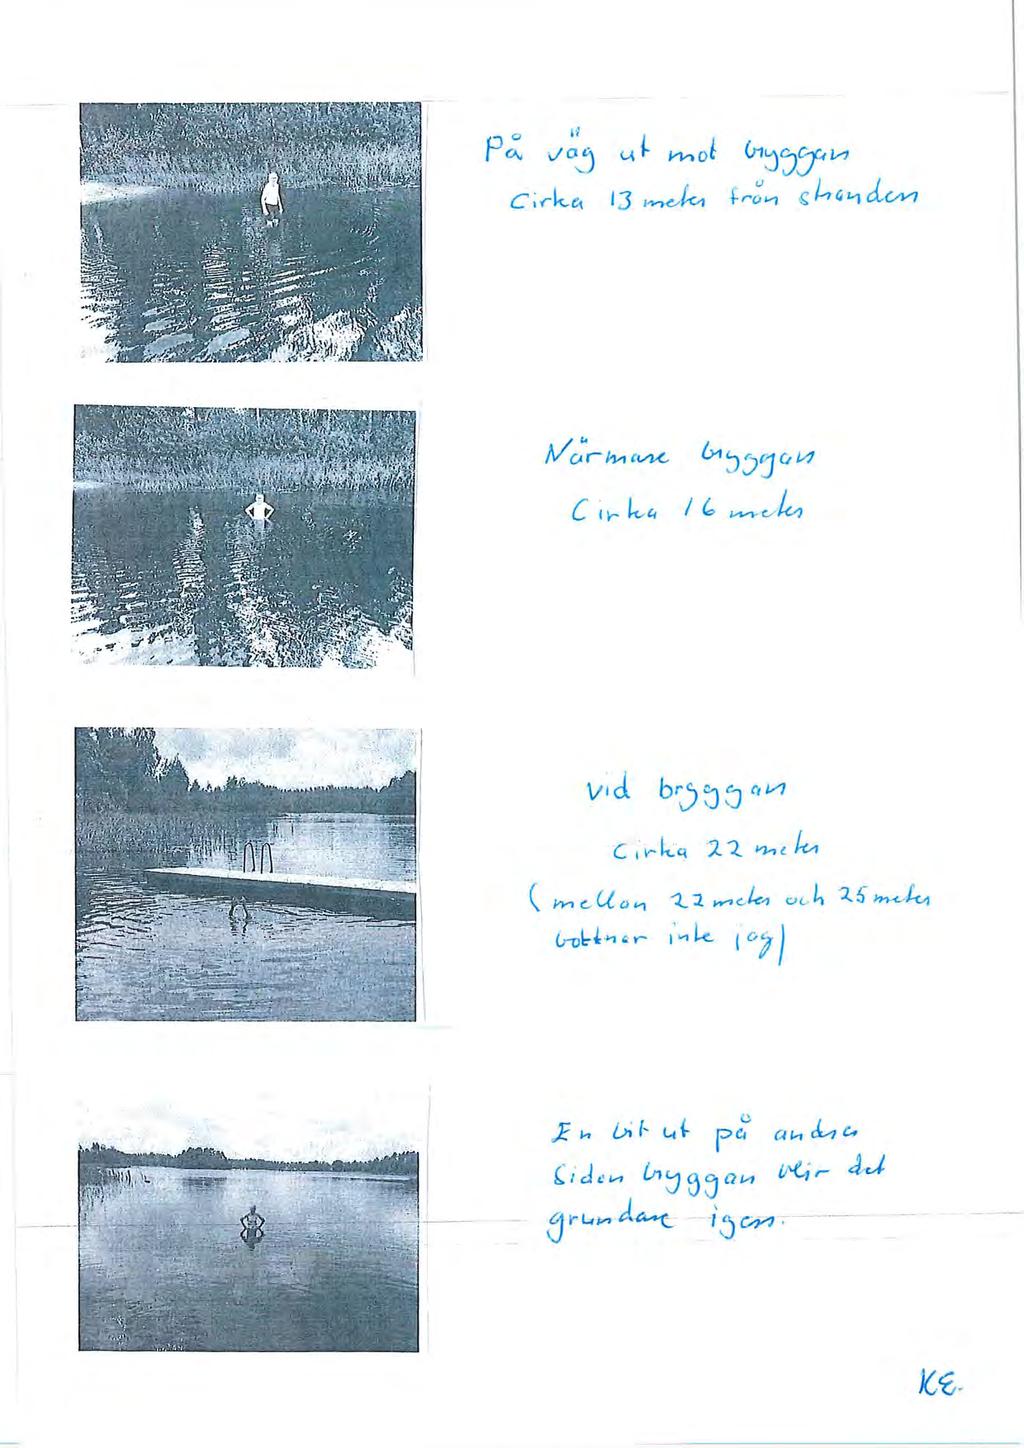 På väg ut mot bryggan
Cirka 13 meter från stranden
Närmare bryggan
Cirka 16 meter
Vid bryggan
Cirka 22 meter
(mellan 22 meter och 25 meter
bottnar inte jag)
En bit ut på andra
Sidan bryggan blir det
grundare igen.
KE.